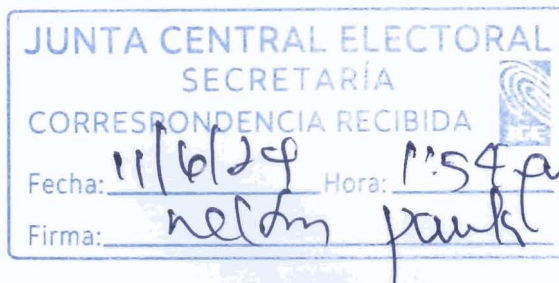 JUNTA CENTRAL ELECTORAL
SECRETARÍA
CORRESPONDENCIA RECIBIDA
Fecha: 11/6/24 Hora: 1:54 p
Firma: